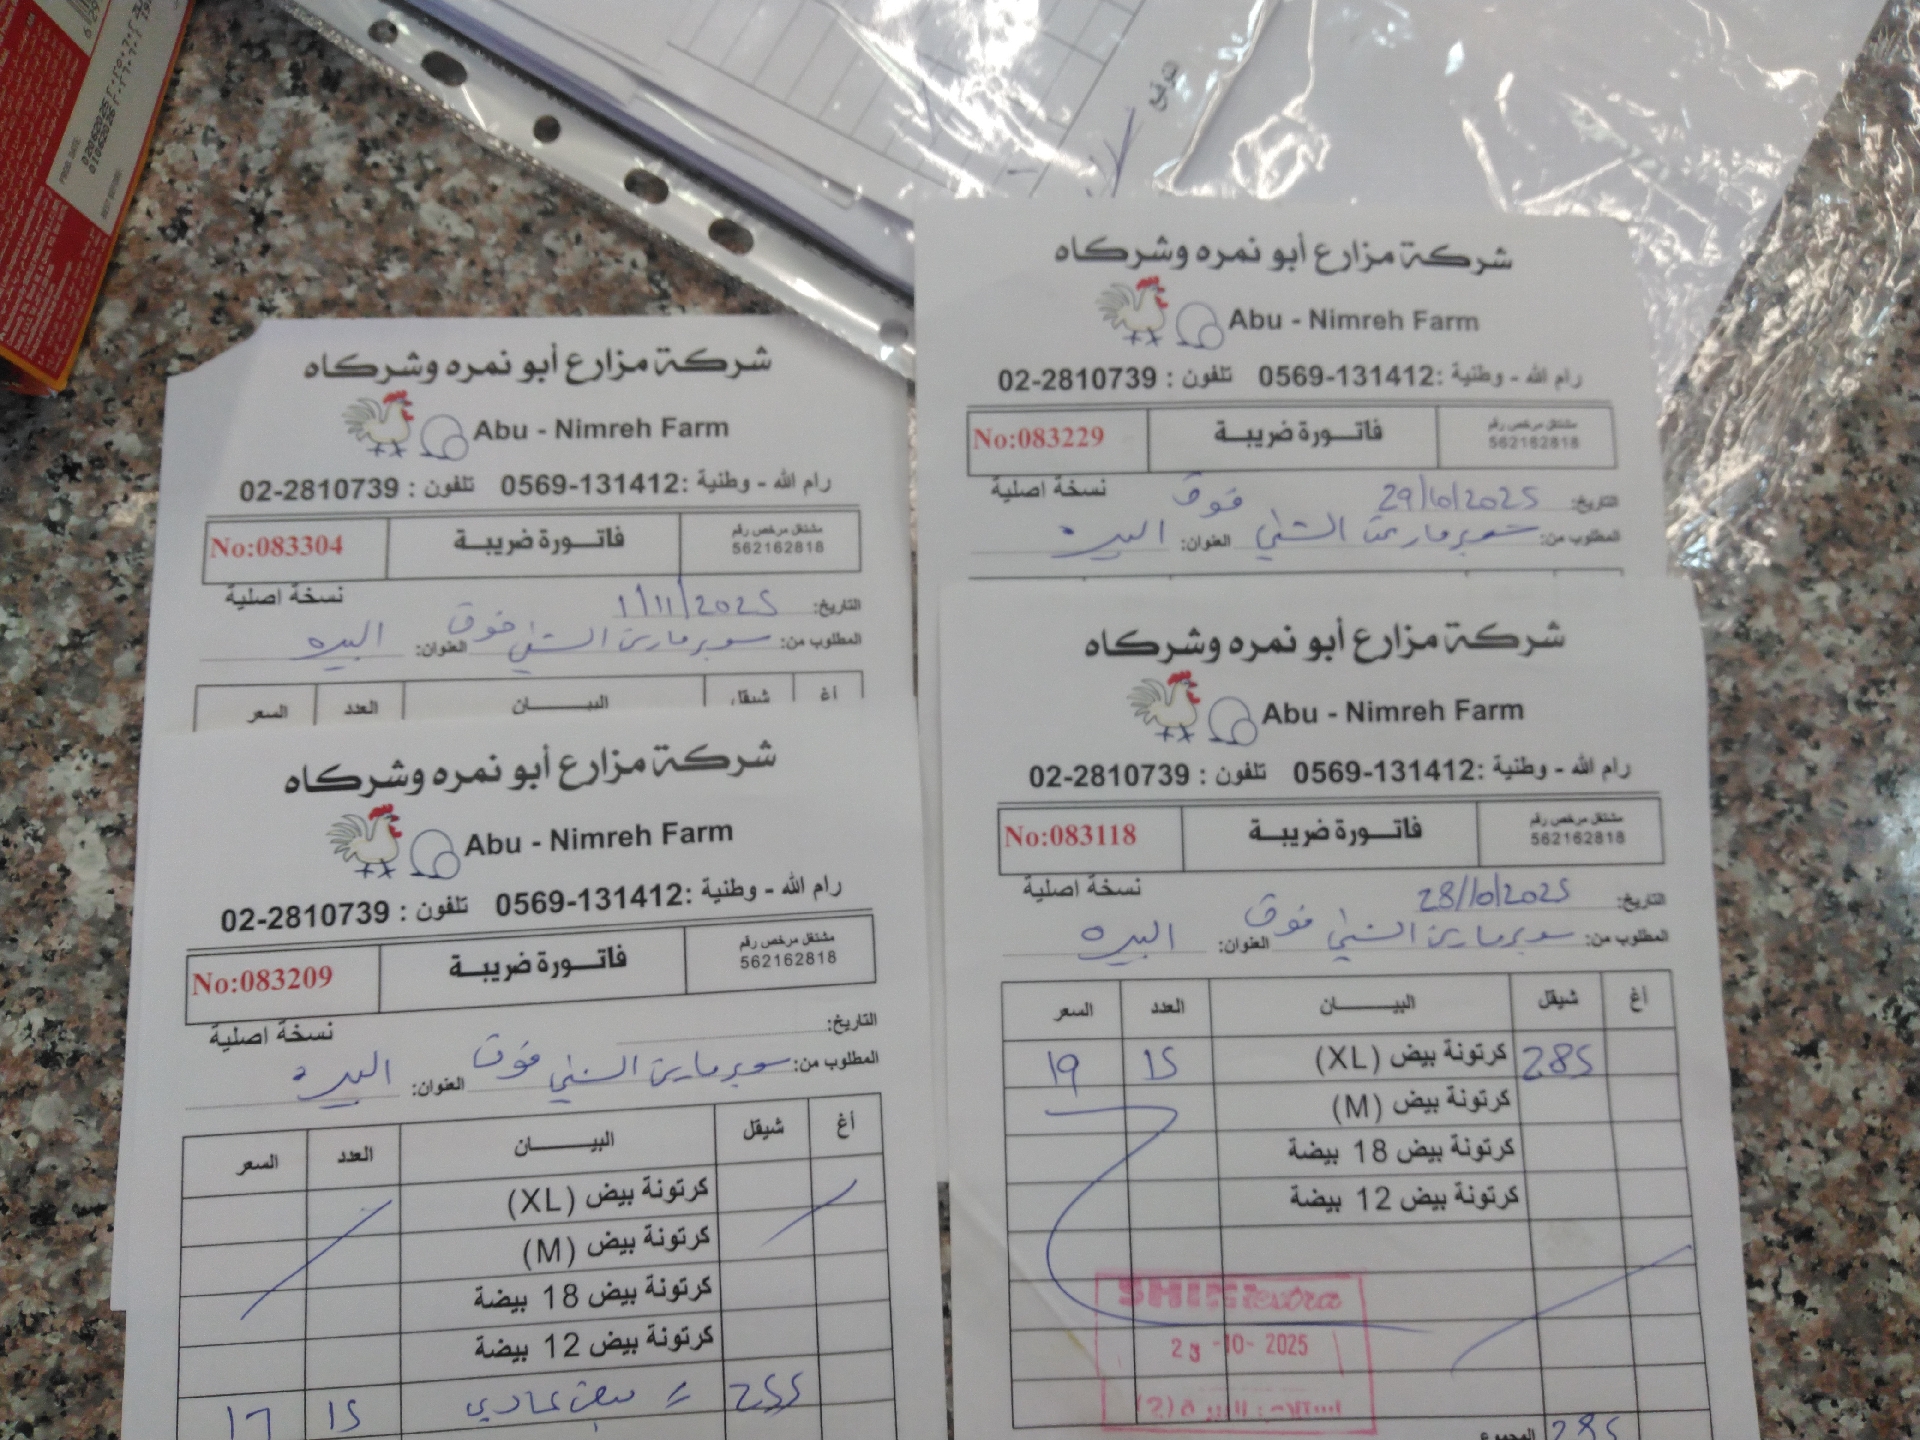 توقيع
شركة مزارع أبو نمره وشركاه
Abu - Nimreh Farm
رام الله - وطنية :0569-131412 تلفون : 02-2810739
No:083304
فاتورة ضريبة
مشتغل مرخص رقم
562162818
نسخة اصلية
التاريخ: 1/11/2025
المطلوب من: سوبرماركت الشني فوق العنوان: البيره
السعر العدد البيان شيقل أغ
شركة مزارع أبو نمره وشركاه
Abu - Nimreh Farm
رام الله - وطنية :0569-131412 تلفون : 02-2810739
No:083229
فاتورة ضريبة
مشتغل مرخص رقم
562162818
نسخة اصلية
التاريخ: 29/10/2025
المطلوب من: سوبرماركت الشني فوق العنوان: البيره
شركة مزارع أبو نمره وشركاه
Abu - Nimreh Farm
رام الله - وطنية :0569-131412 تلفون : 02-2810739
No:083209
فاتورة ضريبة
مشتغل مرخص رقم
562162818
نسخة اصلية
التاريخ:
المطلوب من: سوبرماركت الشني فوق العنوان: البيره
السعر العدد البيان شيقل أغ
كرتونة بيض (XL)
كرتونة بيض (M)
كرتونة بيض 18 بيضة
كرتونة بيض 12 بيضة
17 15 = بيض عادي 255
شركة مزارع أبو نمره وشركاه
Abu - Nimreh Farm
رام الله - وطنية :0569-131412 تلفون : 02-2810739
No:083118
فاتورة ضريبة
مشتغل مرخص رقم
562162818
نسخة اصلية
التاريخ: 28/10/2025
المطلوب من: سوبرماركت الشني فوق العنوان: البيره
السعر العدد البيان شيقل أغ
19 15 كرتونة بيض (XL) 285
كرتونة بيض (M)
كرتونة بيض 18 بيضة
كرتونة بيض 12 بيضة
extra
-10- 2025
(2)
المجموع 285